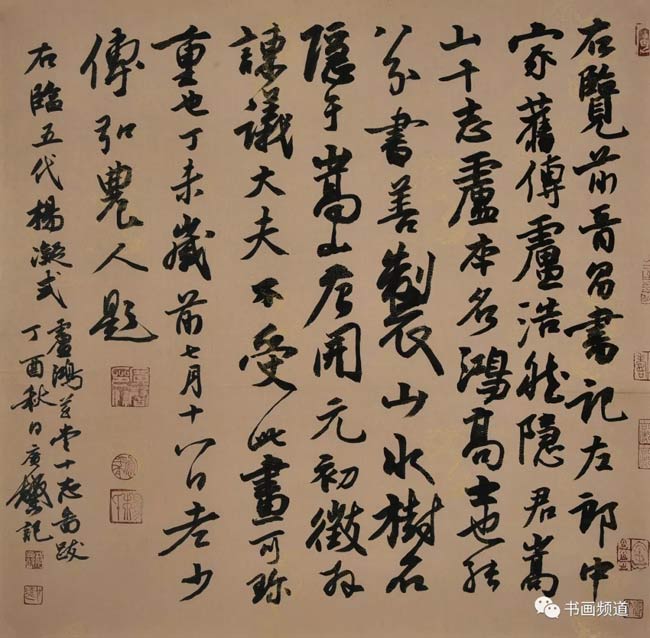 右覽前晉昌書記左郎中
家舊傳盧浩然隱君嵩
山十志盧本名鴻高士也能
八分書善製山水樹石
隱于嵩山唐開元初徵拜
諫議大夫不受此畫可珍
重也丁未歲前七月十八日老少
傅弘農人題
右臨五代楊凝式盧鴻草堂十志圖跋
丁酉秋日記
书画频道